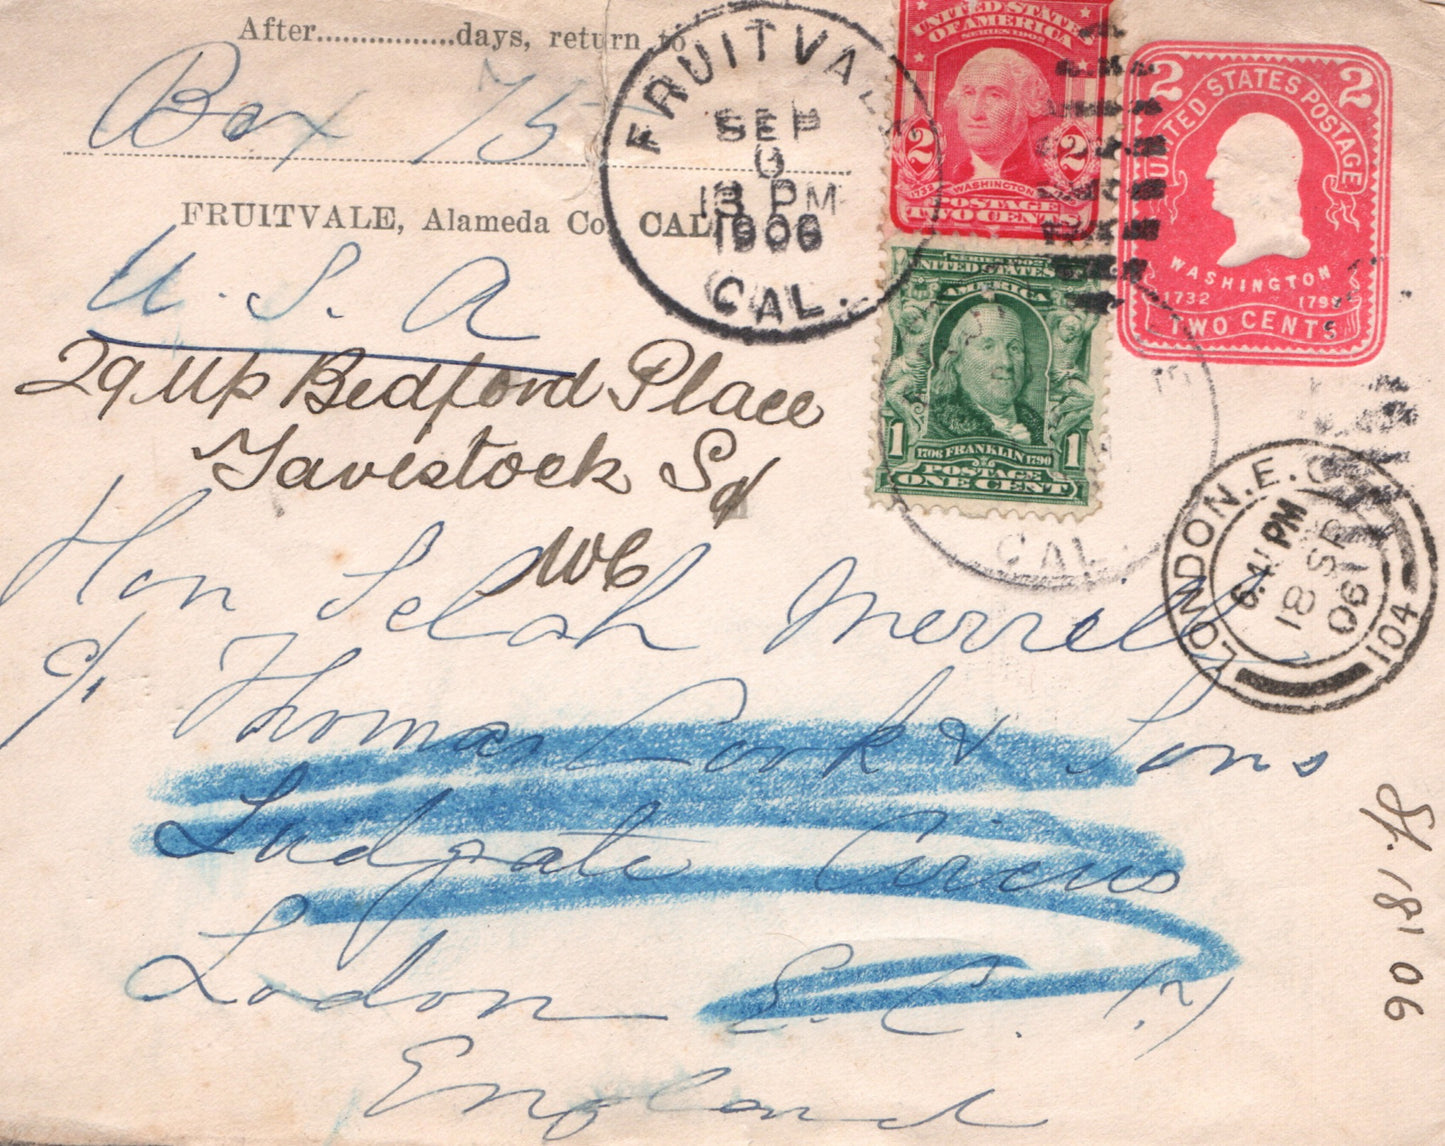 After................days, return to
Box 75
FRUITVALE, Alameda Co. CAL.
U. S. A
29 Up Bedford Place
Tavistock Sq
WC
Hon Selah Merrell
c/. Thomas Cook & Sons
Ludgate Circus
Lodon E. C. (?)
England
FRUITVALE
SEP
6
PM
1906
CAL.
UNITED STATES
OF AMERICA
SERIES 1902
2 2
1732 WASHINGTON
POSTAGE
TWO CENTS
SERIES 1902
UNITED STATES
AMERICA
1 1
1706 FRANKLIN 1790
POSTAGE
ONE CENT
2 2
UNITED STATES POSTAGE
WASHINGTON
1732 1799
TWO CENTS
CAL.
LONDON. E. C
6.4 PM
18 SP
06
104
18 9 06